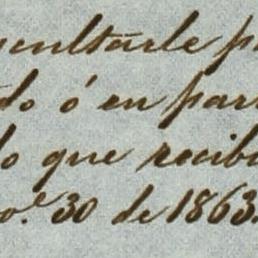 cultarle p
do ó en par
lo que recib
o.e 30 de 1863.